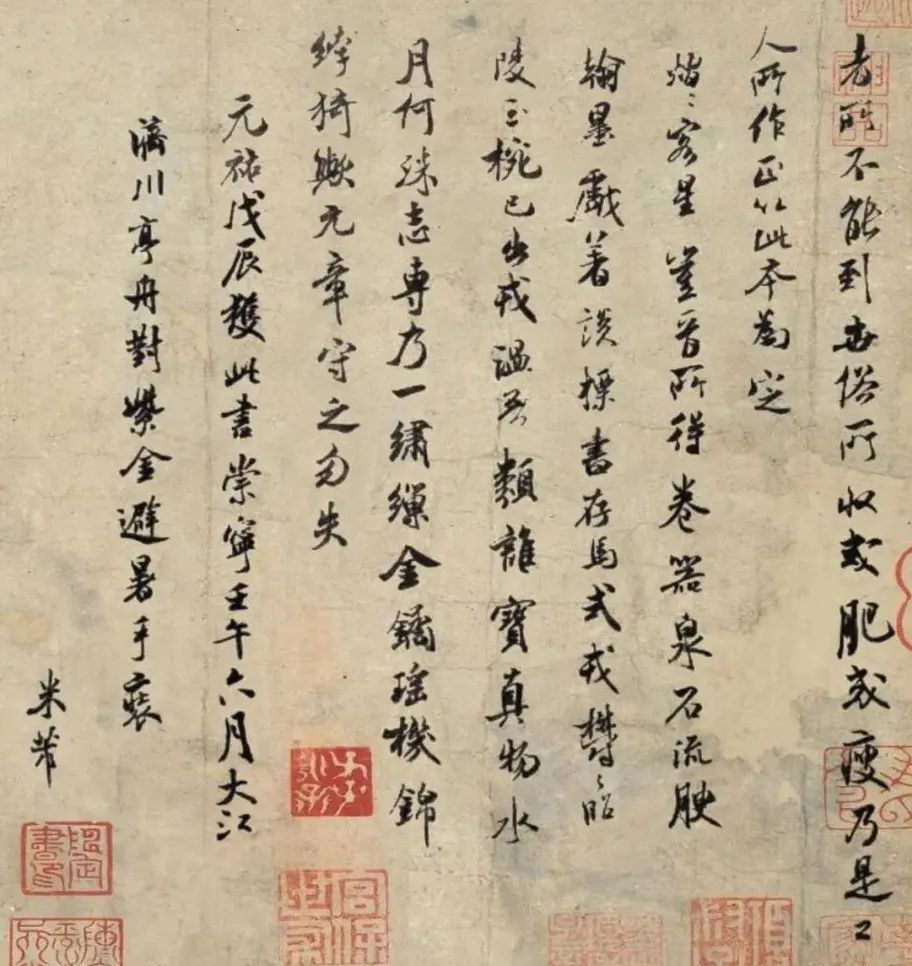 老所不能到世俗所收或肥或瘦乃是工
人所作正以此本為定
熠〻客星豈晉所得卷器泉石流腴
翰墨戲著談標書存馬式戎欝〻昭
陵玉椀已出戎溫無類誰寶真物水
月何殊志專乃一繡繅金鐍瑤機錦
綷猗歟元章守之勿失
元祐戊辰獲此書崇寧壬午六月大江
濟川亭舟對紫金避暑手裝
米芾